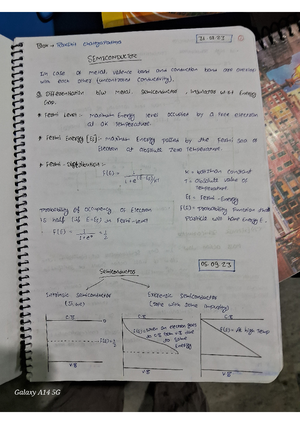 21.09.23
SEMICONDUCTOR
In case of metal, valence band and conduction band are overlap
with each other (uncontrolled conductivity).
Q. Differentiation b/w metal, semiconductor, insulator w.r.t Energy
Gap.
* Fermi Level :- maximum Energy level occupied by a free electron
at 0K temperature.
* Fermi Energy [Ef] :- maximum Energy by the Fermi
electron at absolute zero temperature.
* Fermi - Distribution :-
F(E) = 1 / 1+e^(E-Ef)/kT
K = Boltzman constant
T = absolute value of
temperature.
Ef = Fermi - Energy
F(E) = Probability function that
Particle will have energy E.
Probability of occupancy of electron
is half (if E=Ef) in Fermi-level
F(E) = 1 / 1+e° = 1/2
05.09.23
Semiconductor
Intrinsic semiconductor
Extrensic semiconductor
(done with some impurity)
C.B
C.B
C.B
F(E)=1/2
F(E)= when an electron goes
in C.B from V.B due
to some
Energy
F(E)= at high temp
V.B
V.B
V.B
Galaxy A14 5G